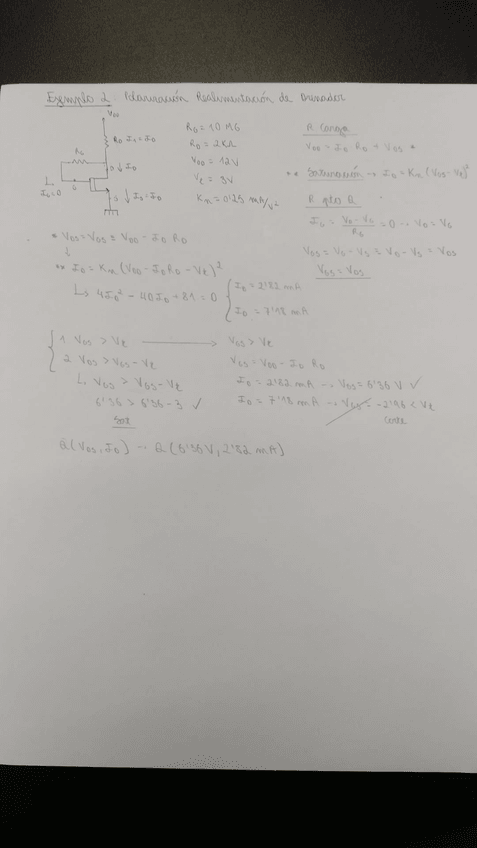 Ejemplo 2 Polarización Realimentación de Drenador
VDD
RD ID=ID
RG
D ↓ ID
G
IG=0
S ↓ ID=ID
RG = 10 MΩ
RD = 2KΩ
VDD = 12V
Vt = 3V
Kn = 0'25 mA/V²
R. Carga
VDD = ID RD + VDS *
** Saturación → ID = Kn (VGS-Vt)²
R. pto Q
IG = (VD - VG)/RG = 0 → VD = VG
VDS = VD - VS = VG - VS = VGS
VDS = VGS
* VDS=VGS = VDD - ID RD
** ID = Kn (VDD - ID RD - Vt)²
↳ 4ID² - 40ID + 81 = 0 { ID = 2'82 mA
ID = 7'18 mA
1. VGS > Vt → VGS > Vt
2. VDS > VGS - Vt
VGS = VDD - ID RD
↳ VGS > VGS - Vt
ID = 2'82 mA → VGS = 6'36 V ✓
6'36 > 6'36 - 3 ✓
ID = 7'18 mA → VGS = -2'36 < Vt
Corte
Sat
Q (VDS, ID) → Q (6'36 V, 2'82 mA)